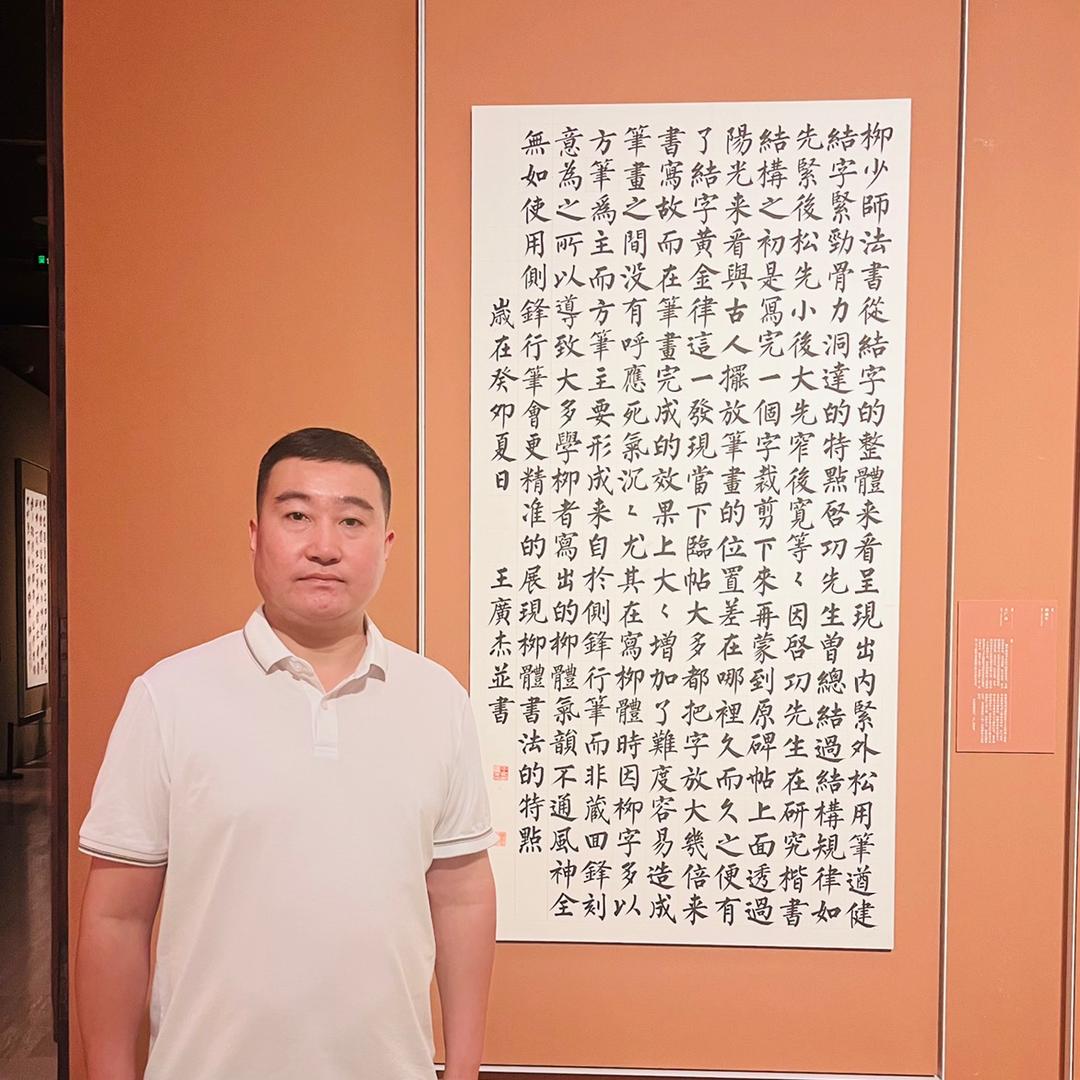 柳少師法書從結字的整體来看呈現出内緊外松用筆遒健
結字緊勁骨力洞達的特點啓功先生曾總結過結構規律如
先緊後松先小後大先窄後寬等〻因啓功先生在研究楷書
結構之初是寫完一個字裁剪下來再蒙到原碑帖上面透過
陽光来看與古人擺放筆畫的位置差在哪裡久而久之便有
了結字黄金律這一發現當下臨帖大多都把字放大幾倍来
書寫故而在筆畫完成的效果上大〻增加了難度容易造成
筆畫之間没有呼應死氣沉〻尤其在寫柳體時因柳字多以
方筆爲主而方筆主要形成来自於側鋒行筆而非蔵回鋒刻
意為之所以導致大多學柳者寫出的柳體氣韻不通風神全
無如使用側鋒行筆會更精准的展現柳體書法的特點
歲在癸卯夏日 王廣杰並書